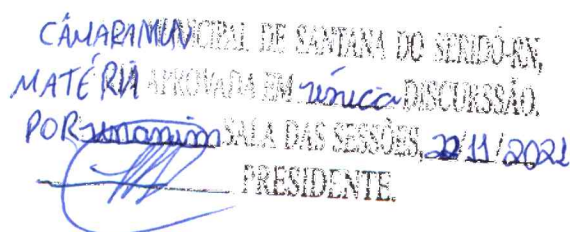 CÂMARA MUNICIPAL DE SANTANA DO SERIDÓ-RN,
MATÉRIA APROVADA EM única DISCURSSÃO.
POR unanim SALA DAS SESSÕES, 22/11/2021
PRESIDENTE.